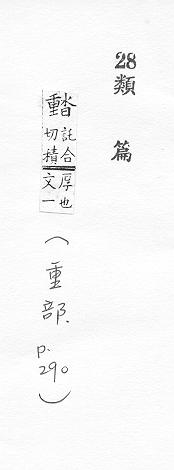 28 類篇
⿰重沓 託合切積厚也文一
(重部. p.290)